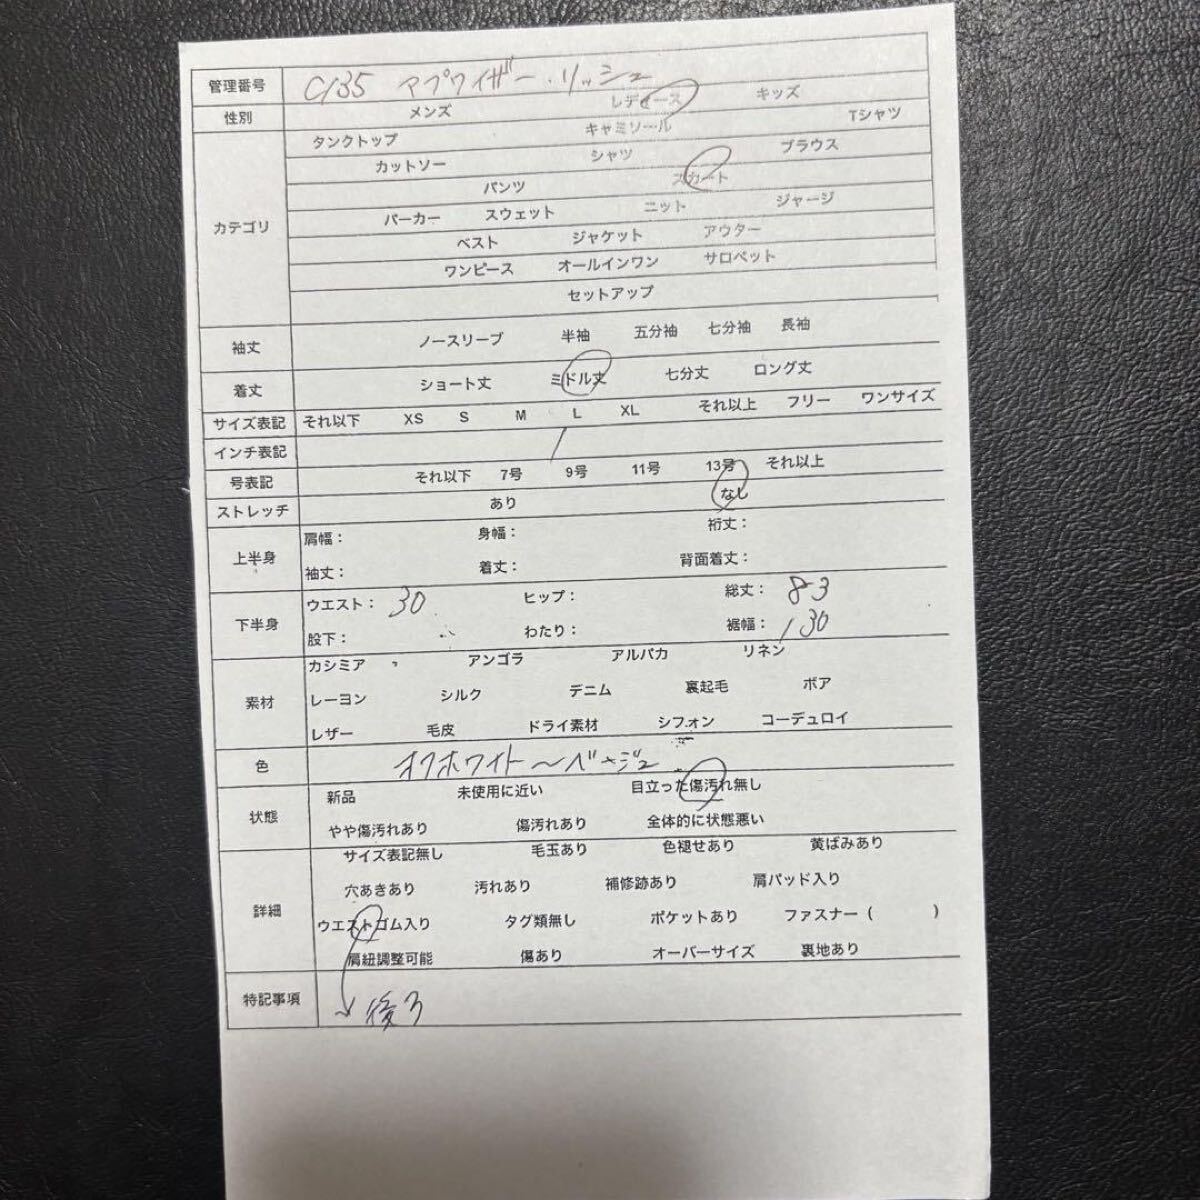 管理番号 C135 アプワイザー・リッシェ
性別 メンズ レディース キッズ
カテゴリ
タンクトップ キャミソール Tシャツ
カットソー シャツ ブラウス
パンツ スカート
パーカー スウェット ニット ジャージ
ベスト ジャケット アウター
ワンピース オールインワン サロペット
セットアップ
袖丈 ノースリーブ 半袖 五分袖 七分袖 長袖
着丈 ショート丈 ミドル丈 七分丈 ロング丈
サイズ表記 それ以下 XS S M L XL それ以上 フリー ワンサイズ
インチ表記
号表記 それ以下 7号 9号 11号 13号 それ以上
ストレッチ あり なし
上半身
肩幅: 身幅: 裄丈:
袖丈: 着丈: 背面着丈:
下半身
ウエスト: 30 ヒップ: 総丈: 83
股下: わたり: 裾幅: 130
素材
カシミア アンゴラ アルパカ リネン
レーヨン シルク デニム 裏起毛 ボア
レザー 毛皮 ドライ素材 シフォン コーデュロイ
色 オフホワイト〜ベージュ
状態
新品 未使用に近い 目立った傷汚れ無し
やや傷汚れあり 傷汚れあり 全体的に状態悪い
詳細
サイズ表記無し 毛玉あり 色褪せあり 黄ばみあり
穴あきあり 汚れあり 補修跡あり 肩パッド入り
ウエストゴム入り タグ類無し ポケットあり ファスナー( )
肩紐調整可能 傷あり オーバーサイズ 裏地あり
特記事項 後ろ